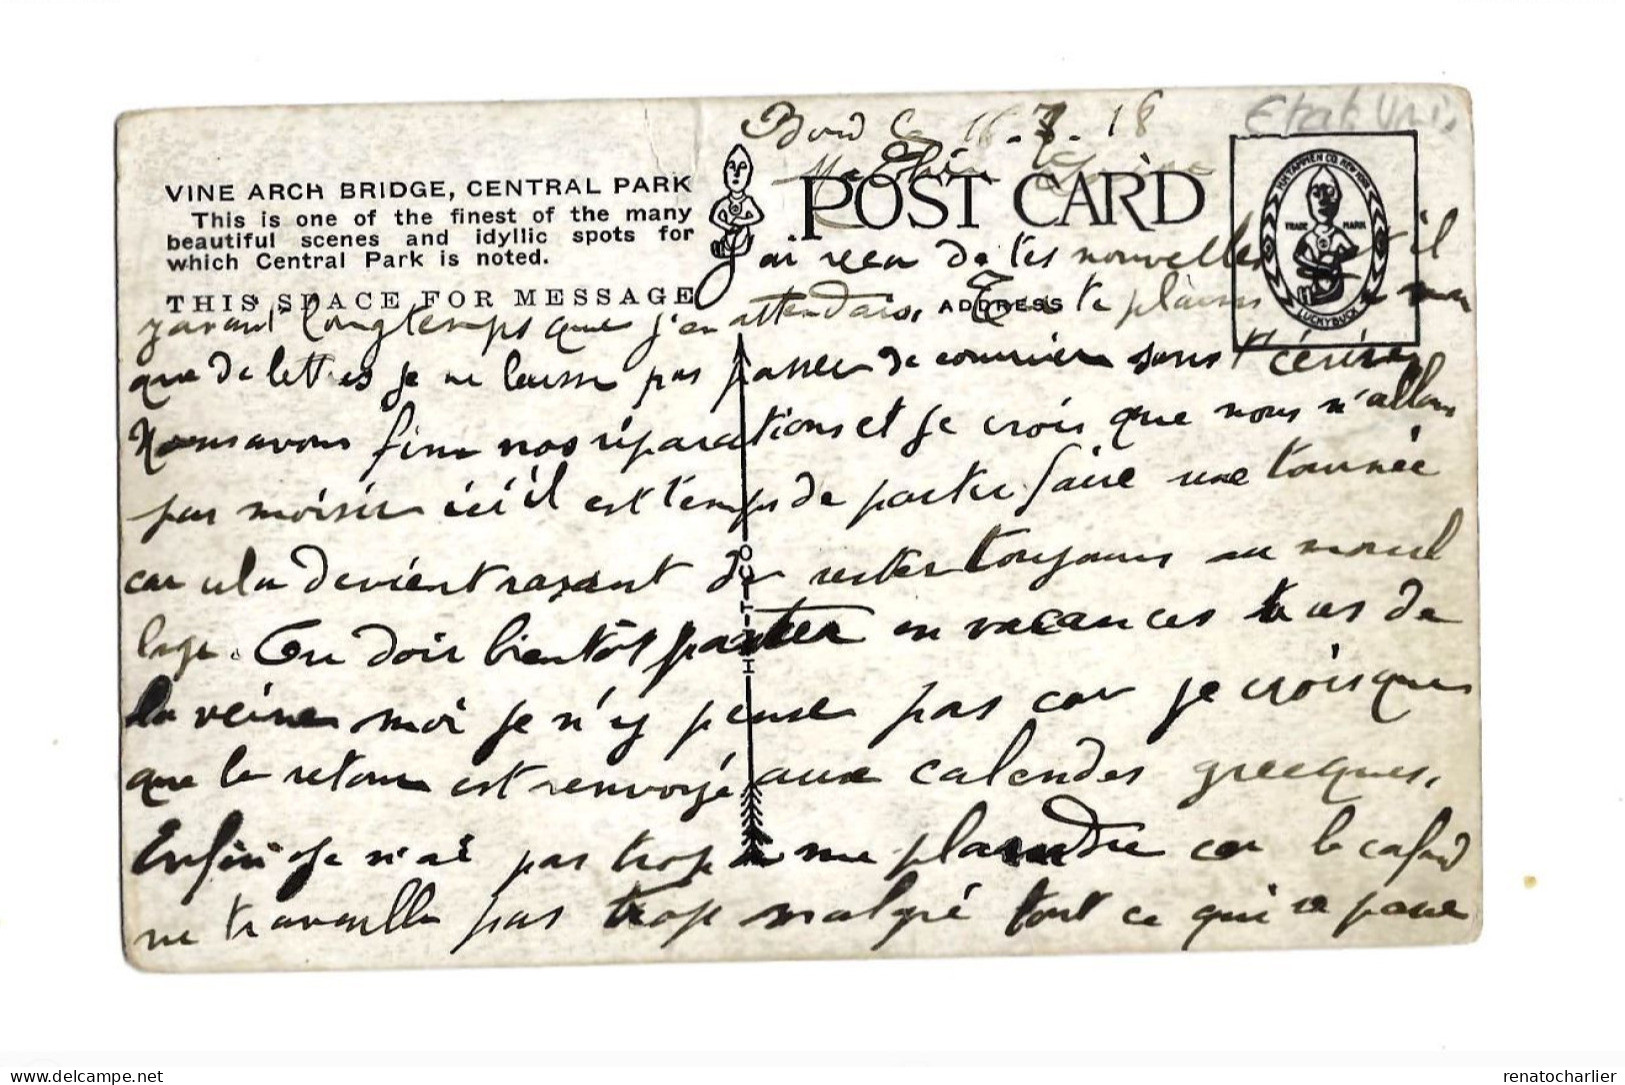 Bord le 16-7-18
Etats Unis
Ma chère
VINE ARCH BRIDGE, CENTRAL PARK
This is one of the finest of the many
beautiful scenes and idyllic spots for
which Central Park is noted.
THIS SPACE FOR MESSAGE
POST CARD
ADDRESS
H.H.TAMMEN CO. NEW YORK
TRADE MARK
LUCKY BUCK
J'ai reçu de tes nouvelles et il
y avait longtemps que j'en attendais. Tu te plains
que de lettres je ne laisse pas passer de courrier sans t'écrire
Nous avons fini nos réparations et je crois que nous n'allons
pas moisir ici il est temps de partir faire une tournée
car cela devient rasant de rester toujours au mouil
lage. Tu dois bientôt partir en vacances tu as de
la veine moi je n'y pense pas car je crois que
que le retour est renvoyé aux calendes grecques.
Enfin je n'ai pas trop à me plaindre car le cafard
ne travaille pas trop malgré tout ce qui se passe
renatocharlier